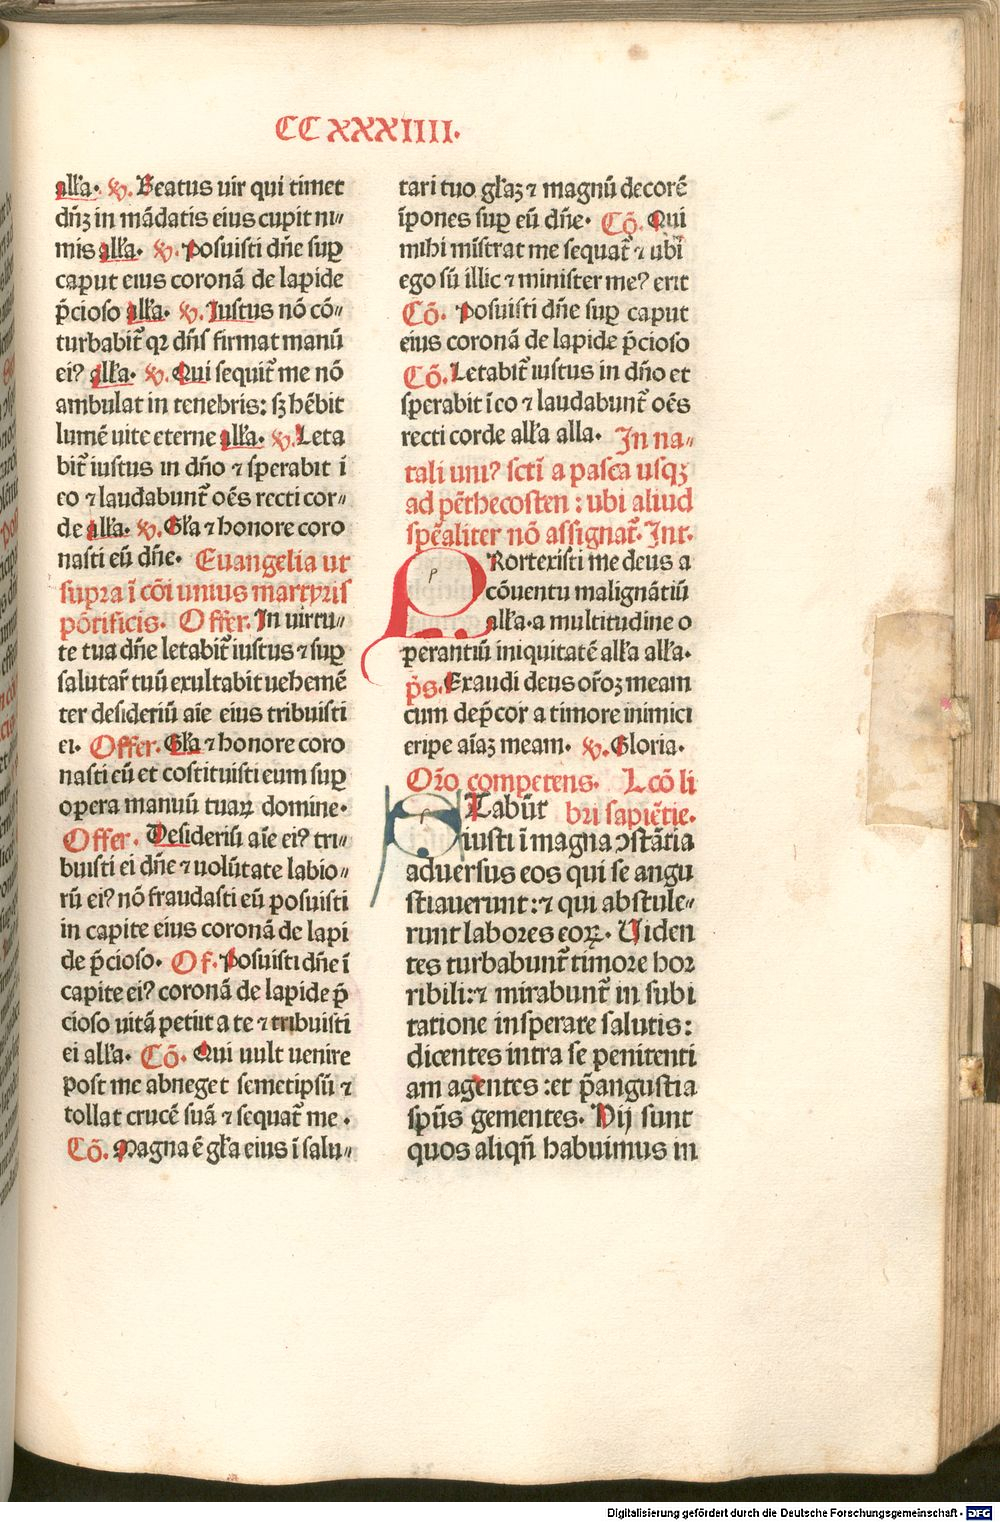 CCXXXIIII.
alła. ꝟ. Beatus uir qui timet
dñꝫ in mādatis eius cupit ni⸗
mis alła. ꝟ. Posuisti dñe suꝑ
caput eius coronā de lapide
p̄cioso alła. ꝟ. Iustus nō cō⸗
turbabit̃ qꝛ dñs firmat manū
eiꝰ alła. ꝟ. Qui sequit̃ me nō
ambulat in tenebris: sꝫ hēbit
lumē uite eterne alła. ꝟ. Leta
bit̃ iustus in dño ⁊ sperabit ī
eo ⁊ laudabunt̃ oēs recti cor⸗
de alła. ꝟ. Gła ⁊ honore coro
nasti eū dñe. Euangelia ut
supra ī cōi unius martyris
pōtificis. Offer. In uirtu⸗
te tua dñe letabit̃ iustus ⁊ suꝑ
salutar̃ tuū exultabit uehemē
ter desideriū aīe eius tribuisti
ei. Offer. Gła ⁊ honore coro
nasti eū et costituisti eum suꝑ
opera manuū tuaꝝ domine.
Offer. Desideriū aīe eiꝰ tri⸗
buisti ei dñe ⁊ uolūtate labio⸗
rū eiꝰ nō fraudasti eū posuisti
in capite eius coronā de lapi
de p̄cioso. Of. Posuisti dñe ī
capite eiꝰ coronā de lapide p̄
cioso uitā petiit a te ⁊ tribuisti
ei alła. Cō. Qui uult uenire
post me abneget semetipsū ⁊
tollat crucē suā ⁊ sequat̃ me.
Cō. Magna ē gła eius ī salu⸗
tari tuo głaꝫ ⁊ magnū decorē
īpones suꝑ eū dñe. Cō. Qui
mihi mīstrat me sequat̃ ⁊ ubi
ego sū illic ⁊ minister meꝰ erit
Cō. Posuisti dñe suꝑ caput
eius coronā de lapide p̄cioso
Cō. Letabit̃ iustus in dño et
sperabit ī eo ⁊ laudabunt̃ oēs
recti corde alła alla. In na⸗
tali uniꝰ sctī a pasca usqꝫ
ad pēthecosten: ubi aliud
spēaliter nō assignat̃. Int.
PRorexisti me deus a
cōuentu malignātiū
alła. a multitudine o
perantiū iniquitatē alła alła.
p̄s. Exaudi deus or̄oꝫ meam
cum dep̄cor a timore inimici
eripe aīaꝫ meam. ꝟ. Gloria.
Or̄o competens. Lcō li
bri sapiētie.
STabūt
iusti ī magna ↄstātia
aduersus eos qui se angu
stiauerunt: ⁊ qui abstule⸗
runt labores eoꝝ. Uiden
tes turbabunt̃ timore hor
ribili: ⁊ mirabunt̃ in subi
tatione insperate salutis:
dicentes intra se penitenti
am agentes: et p̄ angustia
spūs gementes. Hij sunt
quos aliqn̄ habuimus in
Digitalisierung gefördert durch die Deutsche Forschungsgemeinschaft - DFG